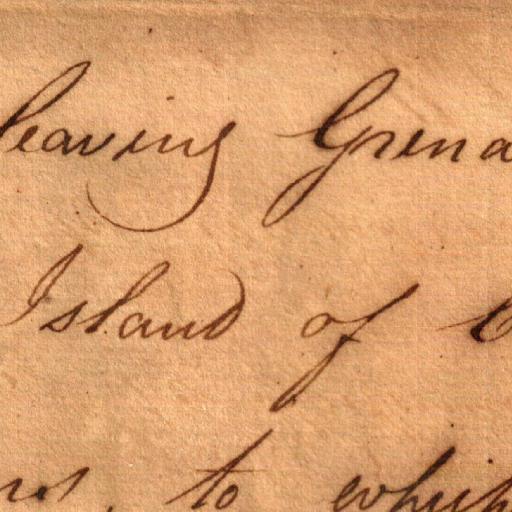 leaving Grena
Island of
to which